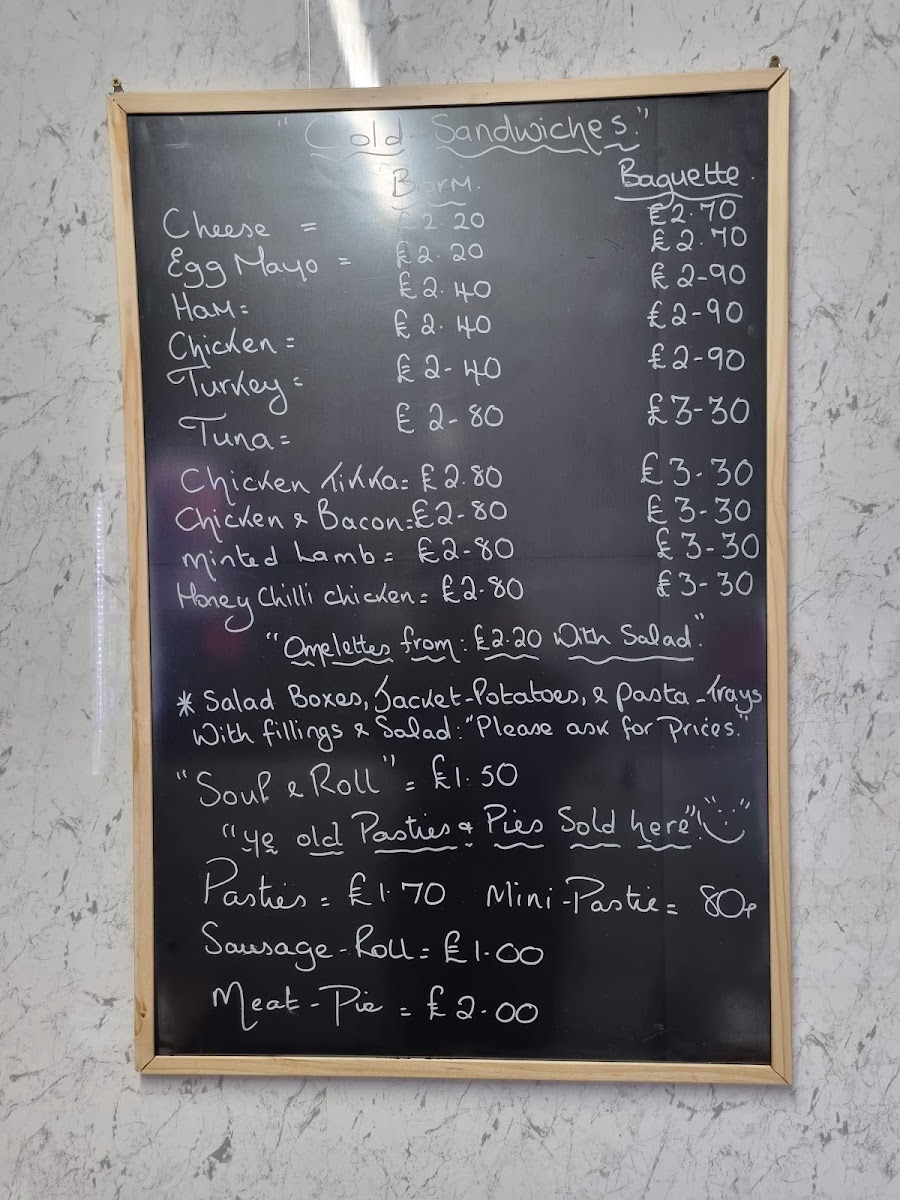 "Cold Sandwiches."
Barm. Baguette.
Cheese = £2.20 £2.70
Egg Mayo = £2.20 £2.70
Ham = £2.40 £2-90
Chicken = £2.40 £2-90
Turkey = £2-40 £2-90
Tuna = £2-80 £3-30
Chicken Tikka = £2.80 £3-30
Chicken & Bacon = £2-80 £3-30
Minted Lamb = £2-80 £3-30
Honey Chilli chicken = £2.80 £3-30
"Omelettes from: £2.20 With Salad"
* Salad Boxes, Jacket-Potatoes, & Pasta-Trays
With fillings & Salad: "Please ask for Prices."
"Soup & Roll" = £1.50
"ye old Pasties & Pies Sold here"
Pasties = £1.70 Mini-Pastie = 80p
Sausage-Roll = £1.00
Meat-Pie = £2.00